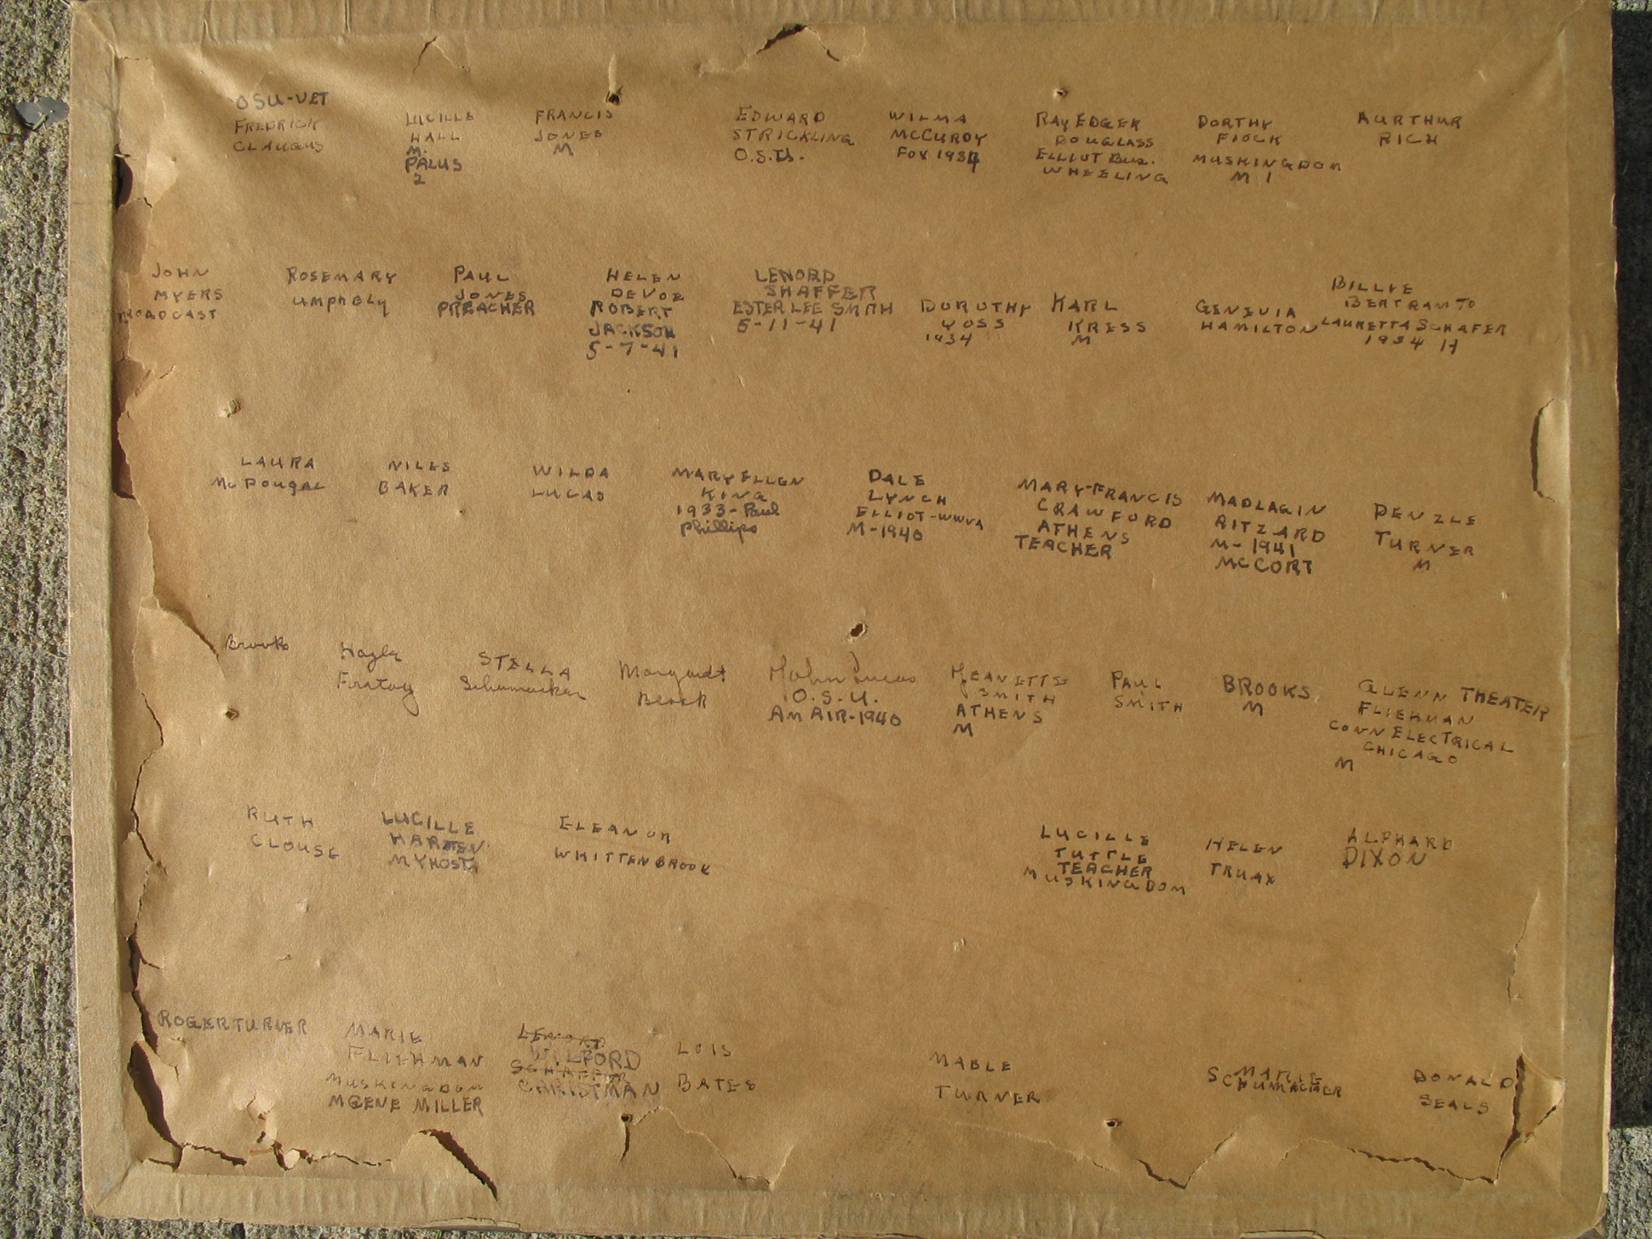 OSU-VET
FREDRICK
CLAUGUS
LUCILLE
HALL
M.
PALUS
2
FRANCIS
JONES
M
EDWARD
STRICKLING
O.S.U.
WILMA
MCCURDY
FOX 1934
RAY EDGER
DOUGLASS
ELLIOT Bus.
WHEELING
DORTHY
FLOCK
MUSKINGDOM
M 1
AURTHUR
RICH
JOHN
MYERS
BROADCAST
ROSEMARY
UMPHBLY
PAUL
JONES
PREACHER
HELEN
DEVOE
ROBERT
JACKSON
5-7-41
LENORD
SHAFFER
ESTER LEE SMITH
5-11-41
DOROTHY
YOSS
1934
KARL
KRESS
M
GENEVIA
HAMILTON
BILLIE
BERTRAM TO
LAURETTA SCHAFER
1934 H
LAURA
McDougal
NILES
BAKER
WILDA
LUCAS
MARY ELLEN
KING
1933 - Paul
Phillips
DALE
LYNCH
ELLIOT-WWVA
M-1940
MARY-FRANCIS
CRAWFORD
ATHENS
TEACHER
MADLAGIN
RITZARD
M-1941
MCCORT
DENZLE
TURNER
M
Brooks
STELLA
Schumacker
Lucas
O.S.U.
AM AIR-1940
JEANETTE
SMITH
ATHENS
M
PAUL
SMITH
BROOKS
M
GLENN THEATER
FLIEHMAN
CONN ELECTRICAL
CHICAGO
M
RUTH
CLOUSE
LUCILLE
HARTEN
MYHOSTA
ELEANOR
WHITTENBROOK
LUCILLE
TUTTLE
TEACHER
MUSKINGDOM
HELEN
TRUAX
ALPHARD
DIXON
ROGER TURNER
MARIE
FLIEHMAN
MUSKINGDOM
MGENE MILLER
LENORD
WILFORD
SCHAFFER
CHRISTMAN
LOIS
BATES
MABLE
TURNER
SCHUMACHER
DONALD
SEALS